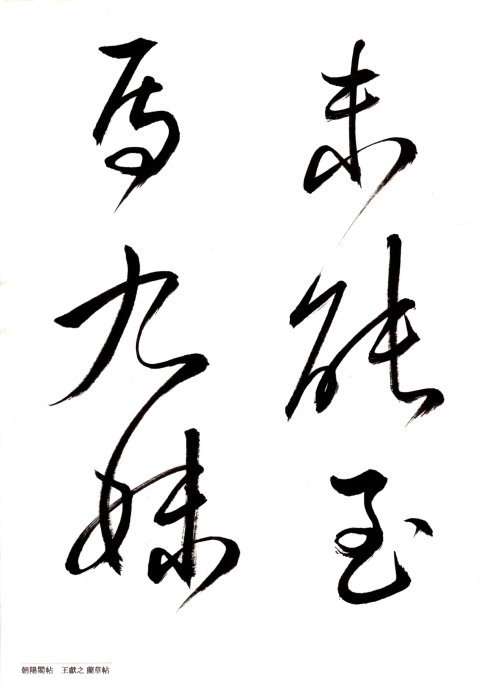 未能
九妹
朝陽閣帖　王獻之 蘭草帖